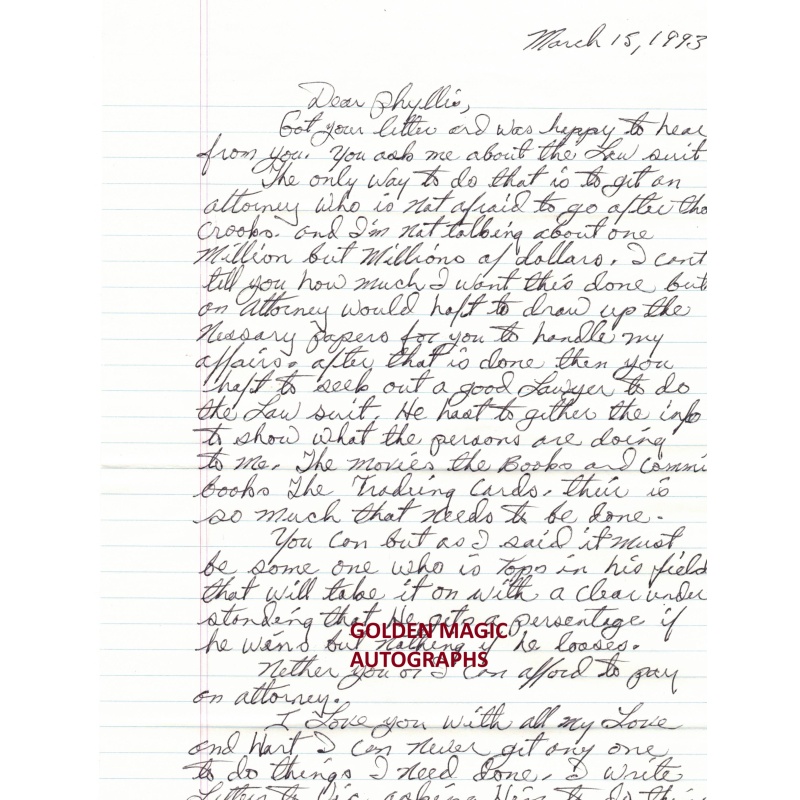 March 15, 1993
Dear Phyllis,
Got your litter and was happy to hear
from you. You ask me about the Law suit
The only way to do that is to git an
attorney who is not afraid to go after tho
croobs. and I'm not talking about one
Million but Millions of dollars. I cant
till you how much I want this done but
an Attorney would haft to draw up the
Nessary papers for you to handle my
affairs. after that is done then you
haft to seek out a good Lawyer to do
the Law suit. He hast to gither the info
to show what the persons are doing
to me. The movies the Books and commi
books The Trading Cards. their is
so much that needs to be done.
You can but as I said it must
be some one who is Tops in his field
that will take it on with a clear under
standing that He gits a persentage if
he wins but nothing if he looses.
GOLDEN MAGIC
AUTOGRAPHS
Nether you or I can afford to pay
an attorney.
I Love you with all my Love
and Hart I can never git any one
to do things I need done. I write
Litter to asking Him to do